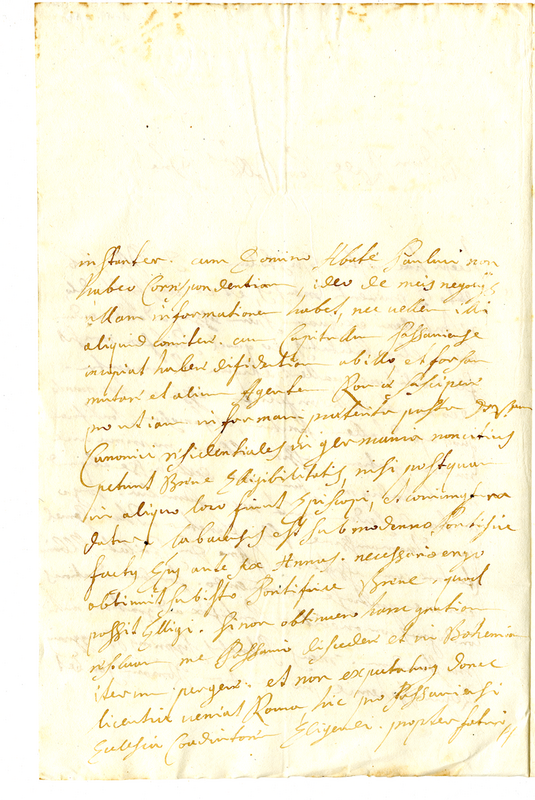 instanter. cum Domino Abate Pauluci non
habeo Correspundentiam, ideo de meis negotys
ullam informationem habet, nec vellem illi
aliquid comiter. cum Capitulum Passaviense
incipiat habere difidentiam ab illo et forsan
mutare et alium Agentem Roma suscipere
informare praetenta possa
Canonici residentiales in germania non citius
petunt Breve Elligibilitatis, nisi postquam
in aliquo loco fiunt Episcopi, et
datur Labacensis est sub moderno Pontifice
factus Eps ante hos Annos. necessario ergo
obtinuit sub isto Pontifice Breve, quod
possit Elligi. Si non obtinero hanc gratiam
resolvam me Passavio discedere et in Bohemiam
iterum pergere. et non expectabimus donec
licentia veniat Roma hic pro Passaviensi
Eclesia Coadiutorem Eligendi. propter